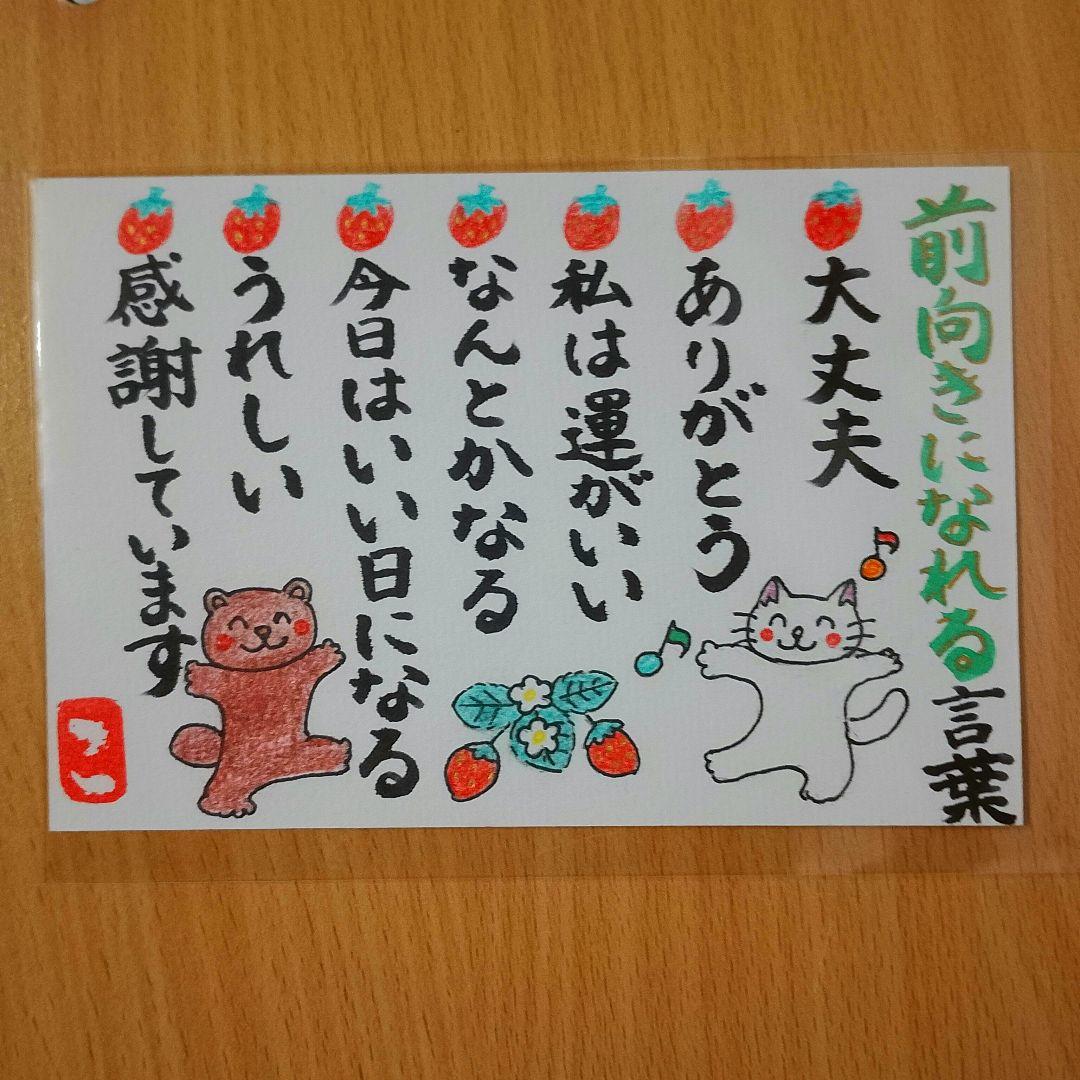 前向きになれる言葉
大丈夫
ありがとう
私は運がいい
なんとかなる
今日はいい日になる
うれしい
感謝しています